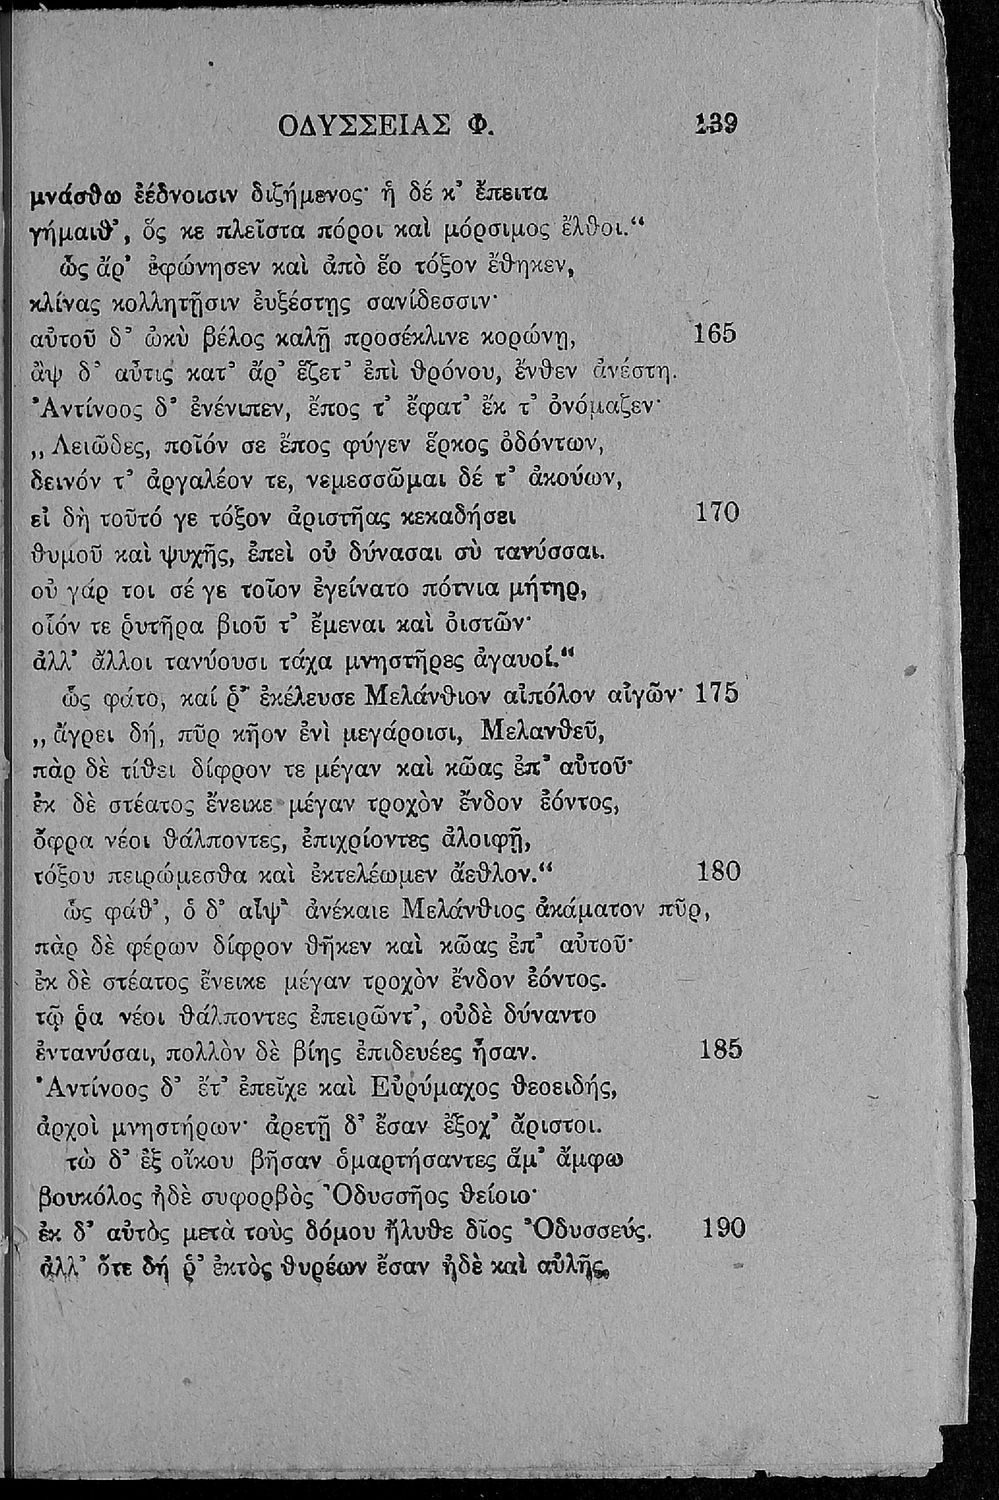 ΟΔΥΣΣΕΙΑΣ Φ. 139
μνάσθω ἐέδνοισιν διζήμενος· ἡ δέ κ’ ἔπειτα
γήμαιθ’, ὅς κε πλεῖστα πόροι καὶ μόρσιμος ἔλθοι.“
ὣς ἄρ’ ἐφώνησεν καὶ ἀπὸ ἕο τόξον ἔθηκεν,
κλίνας κολλητῇσιν ἐυξέστῃς σανίδεσσιν·
αὐτοῦ δ’ ὠκὺ βέλος καλῇ προσέκλινε κορώνῃ, 165
ἂψ δ’ αὖτις κατ’ ἄρ’ ἕζετ’ ἐπὶ θρόνου, ἔνθεν ἀνέστη.
Ἀντίνοος δ’ ἐνένιπεν, ἔπος τ’ ἔφατ’ ἔκ τ’ ὀνόμαζεν·
„Λειῶδες, ποῖόν σε ἔπος φύγεν ἕρκος ὀδόντων,
δεινόν τ’ ἀργαλέον τε, νεμεσσῶμαι δέ τ’ ἀκούων,
εἰ δὴ τοῦτό γε τόξον ἀριστῆας κεκαδήσει 170
θυμοῦ καὶ ψυχῆς, ἐπεὶ οὐ δύνασαι σὺ τανύσσαι.
οὐ γάρ τοι σέ γε τοῖον ἐγείνατο πότνια μήτηρ,
οἷόν τε ῥυτῆρα βιοῦ τ’ ἔμεναι καὶ ὀιστῶν·
ἀλλ’ ἄλλοι τανύουσι τάχα μνηστῆρες ἀγαυοί.“
ὣς φάτο, καί ῥ’ ἐκέλευσε Μελάνθιον αἰπόλον αἰγῶν· 175
„ἄγρει δή, πῦρ κῆον ἐνὶ μεγάροισι, Μελανθεῦ,
πὰρ δὲ τίθει δίφρον τε μέγαν καὶ κῶας ἐπ’ αὐτοῦ·
ἐκ δὲ στέατος ἔνεικε μέγαν τροχὸν ἔνδον ἐόντος,
ὄφρα νέοι θάλποντες, ἐπιχρίοντες ἀλοιφῇ,
τόξου πειρώμεσθα καὶ ἐκτελέωμεν ἄεθλον.“ 180
ὣς φάθ’, ὁ δ’ αἶψ’ ἀνέκαιε Μελάνθιος ἀκάματον πῦρ,
πὰρ δὲ φέρων δίφρον θῆκεν καὶ κῶας ἐπ’ αὐτοῦ·
ἐκ δὲ στέατος ἔνεικε μέγαν τροχὸν ἔνδον ἐόντος.
τῷ ῥα νέοι θάλποντες ἐπειρῶντ’, οὐδὲ δύναντο
ἐντανύσαι, πολλὸν δὲ βίης ἐπιδευέες ἦσαν. 185
Ἀντίνοος δ’ ἔτ’ ἐπεῖχε καὶ Εὐρύμαχος θεοειδής,
ἀρχοὶ μνηστήρων· ἀρετῇ δ’ ἔσαν ἔξοχ’ ἄριστοι.
τὼ δ’ ἐξ οἴκου βῆσαν ὁμαρτήσαντες ἅμ’ ἄμφω
βουκόλος ἠδὲ συφορβὸς Ὀδυσσῆος θείοιο·
ἐκ δ’ αὐτὸς μετὰ τοὺς δόμου ἤλυθε δῖος Ὀδυσσεύς. 190
ἀλλ’ ὅτε δή ῥ’ ἐκτὸς θυρέων ἔσαν ἠδὲ καὶ αὐλῆς,